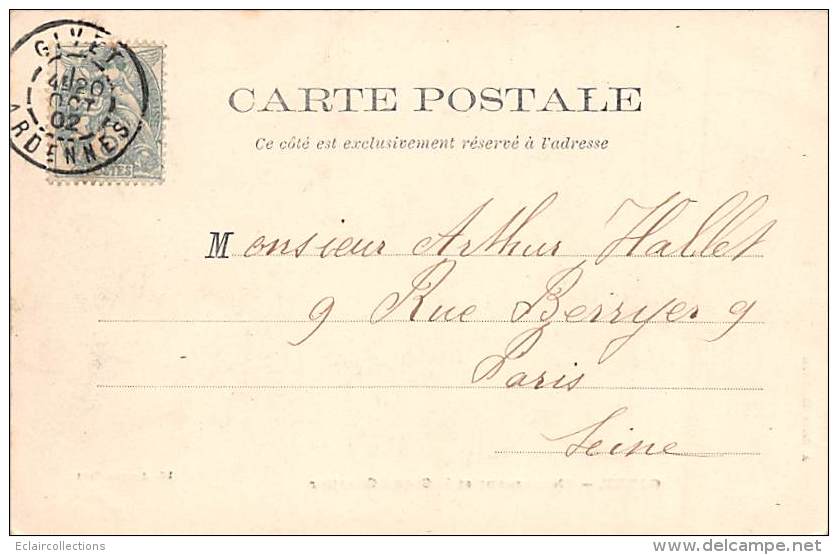 GIVET
4E 20
OCT
02
ARDENNES
POSTES
CARTE POSTALE
Ce côté est exclusivement réservé à l'adresse
Monsieur Arthur Hallet
9 Rue Berryer 9
Paris
Seine
Eclaircollections
delcampe.net